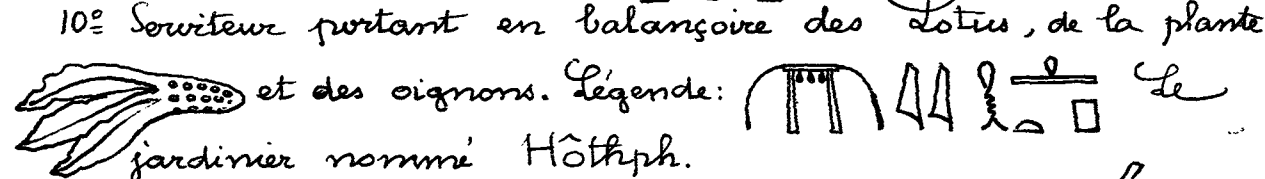 10º Serviteur portant en balançoire des Lotus, de la plante
et des oignons. Légende: Le
jardinier nommé Hôthph.